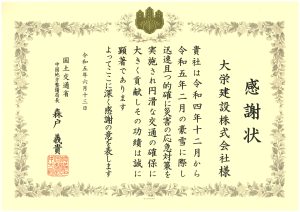 感謝状
大栄建設株式会社様
貴社は令和四年十二月から
令和五年二月の豪雪に際し
迅速且つ的確に災害の応急対策を
実施され円滑な交通の確保に
大きく貢献しその功績は誠に
顕著であります
よってここに深く感謝の意を表します
令和五年六月十三日
国土交通省
中国地方整備局長
森戸義貴